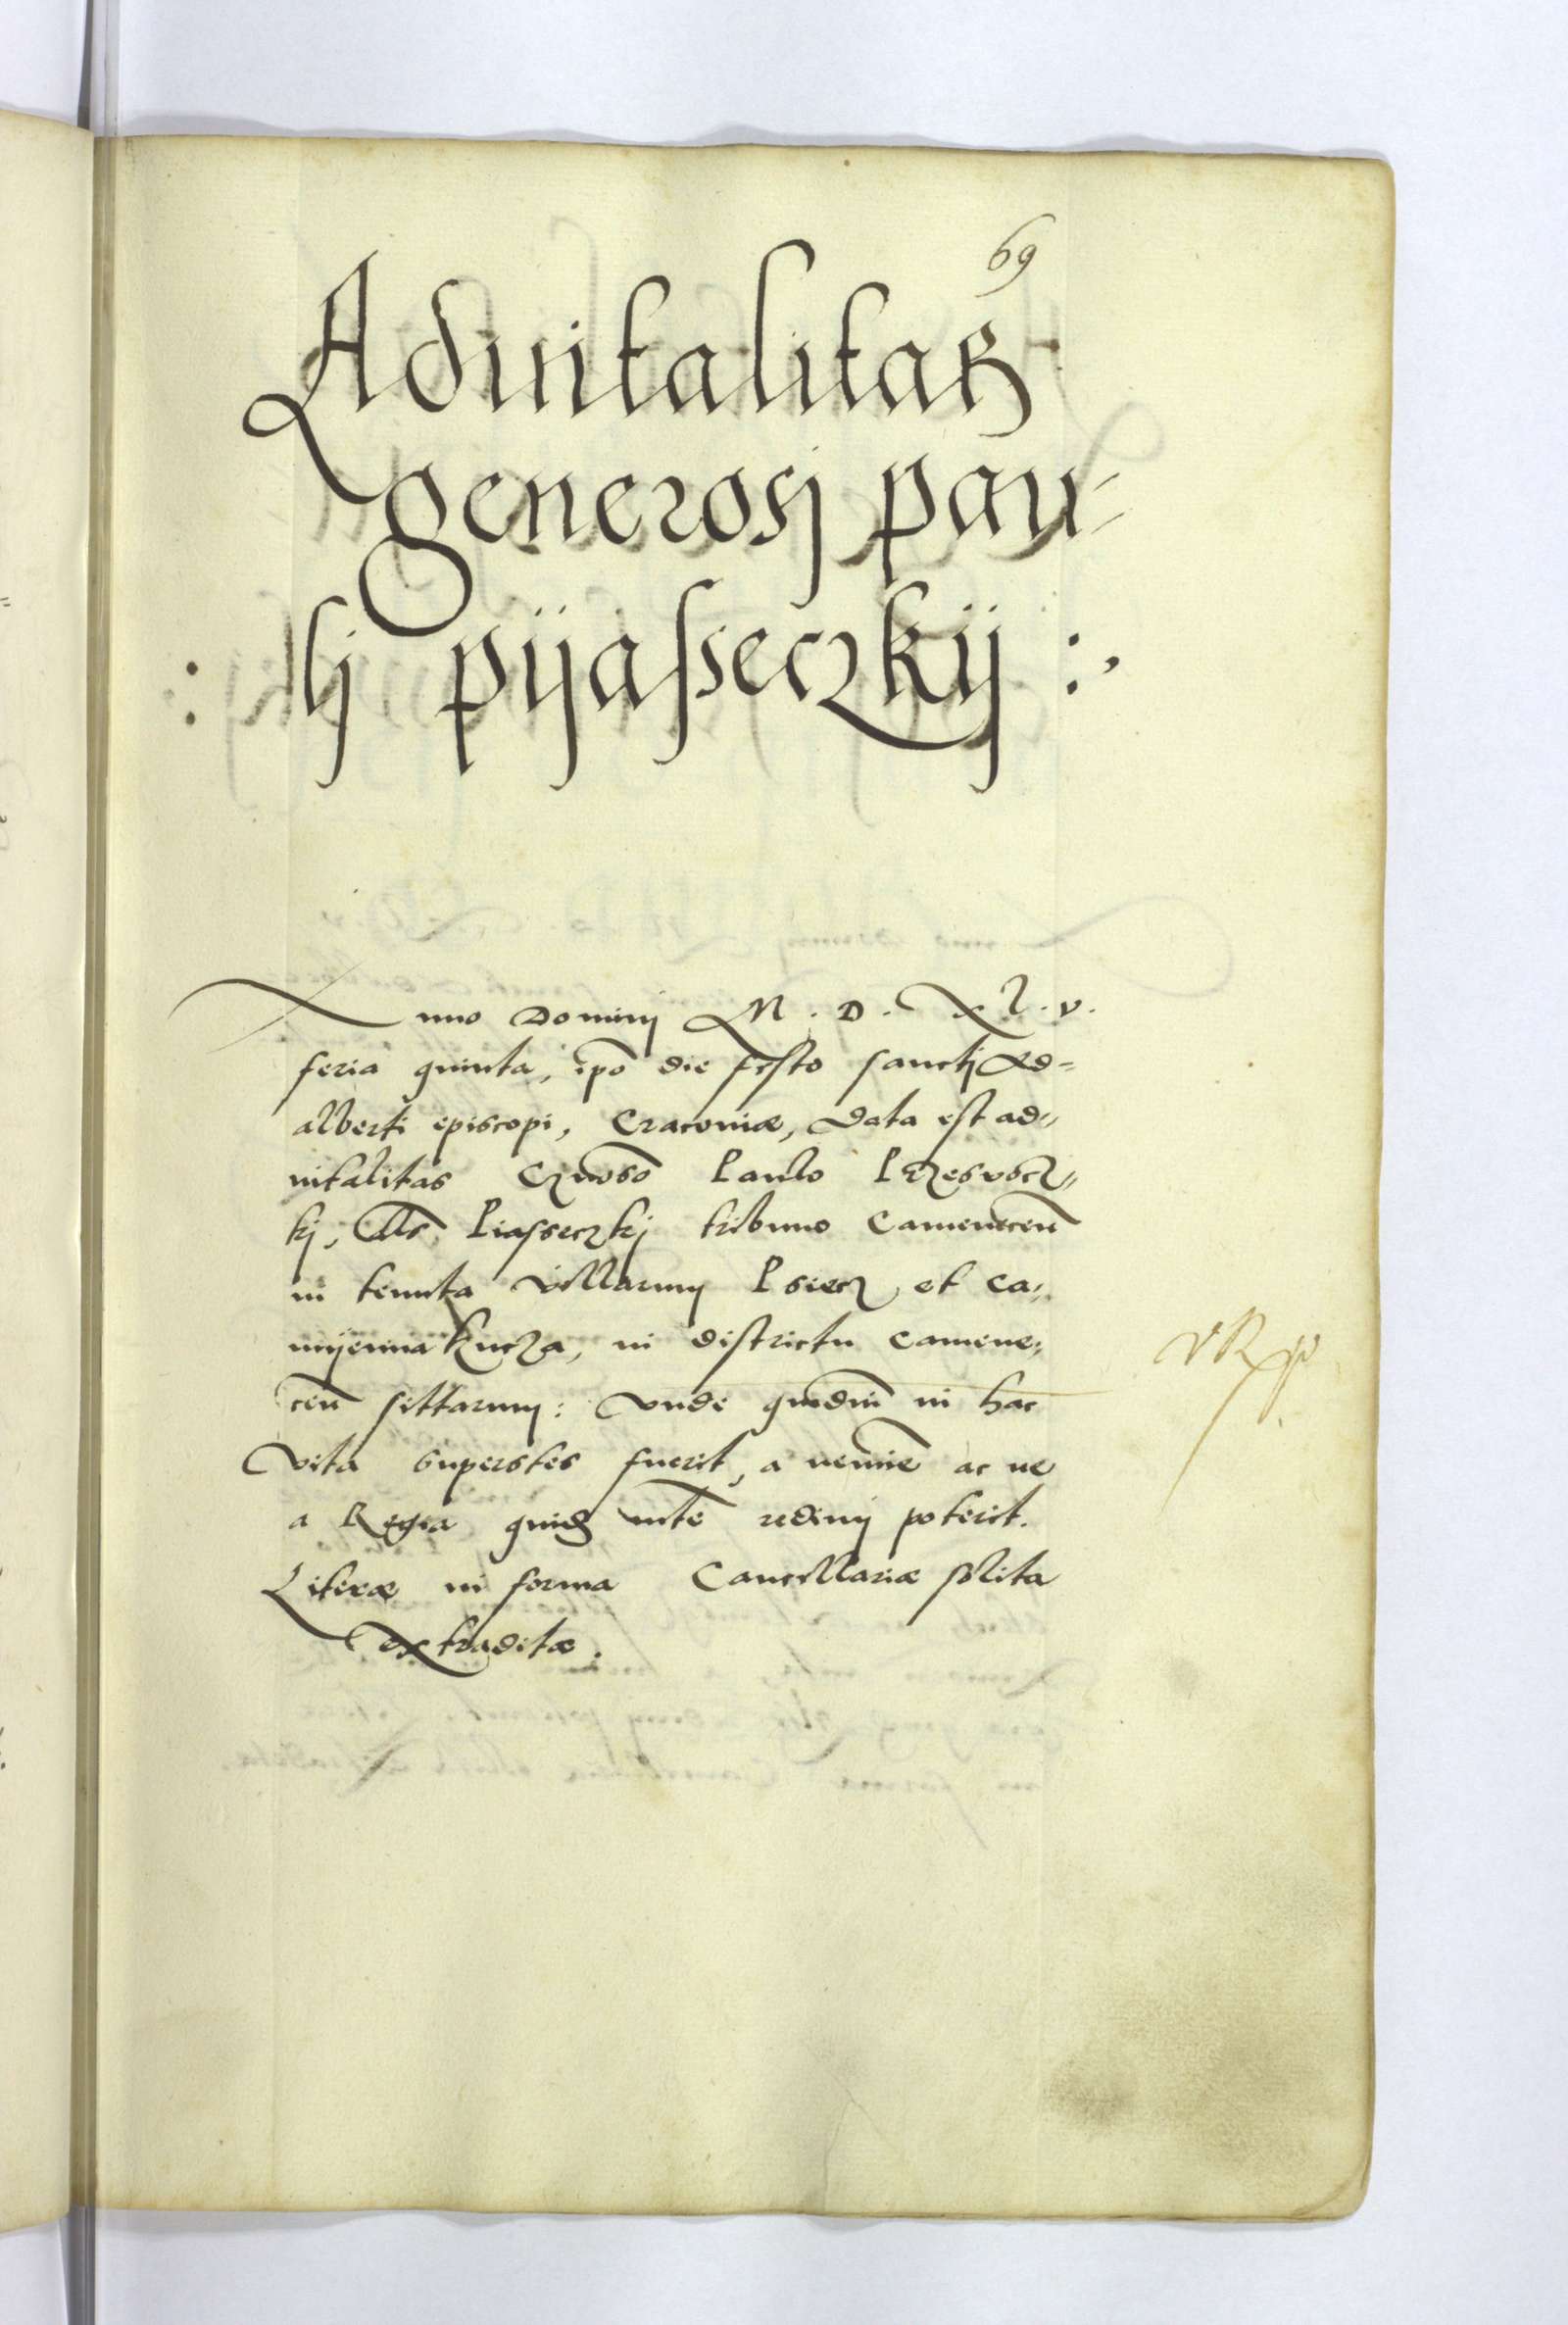 69
Aduitalitas
generosj pau-
: lj pijasseczkij :,
Anno Dominj M. D. XL. v.
feria quinta, ipo die festo sanctj Ad=
alberti episcopi, Cracoviæ, data est ad-
uitalitas Gnoso Paulo
kj, Als Piasseczkj tribuno Camenecen
in tenuta villarum Psiecz et Ca-
mijenna Kucza, in districtu Camene-
cen sittarum: Vnde quãdiu in hac
vita superstes fuerit, a nemine ac ne
a Regia quidẽ mte redimj poterit.
Literæ in forma Cancellariæ solita
extraditæ.